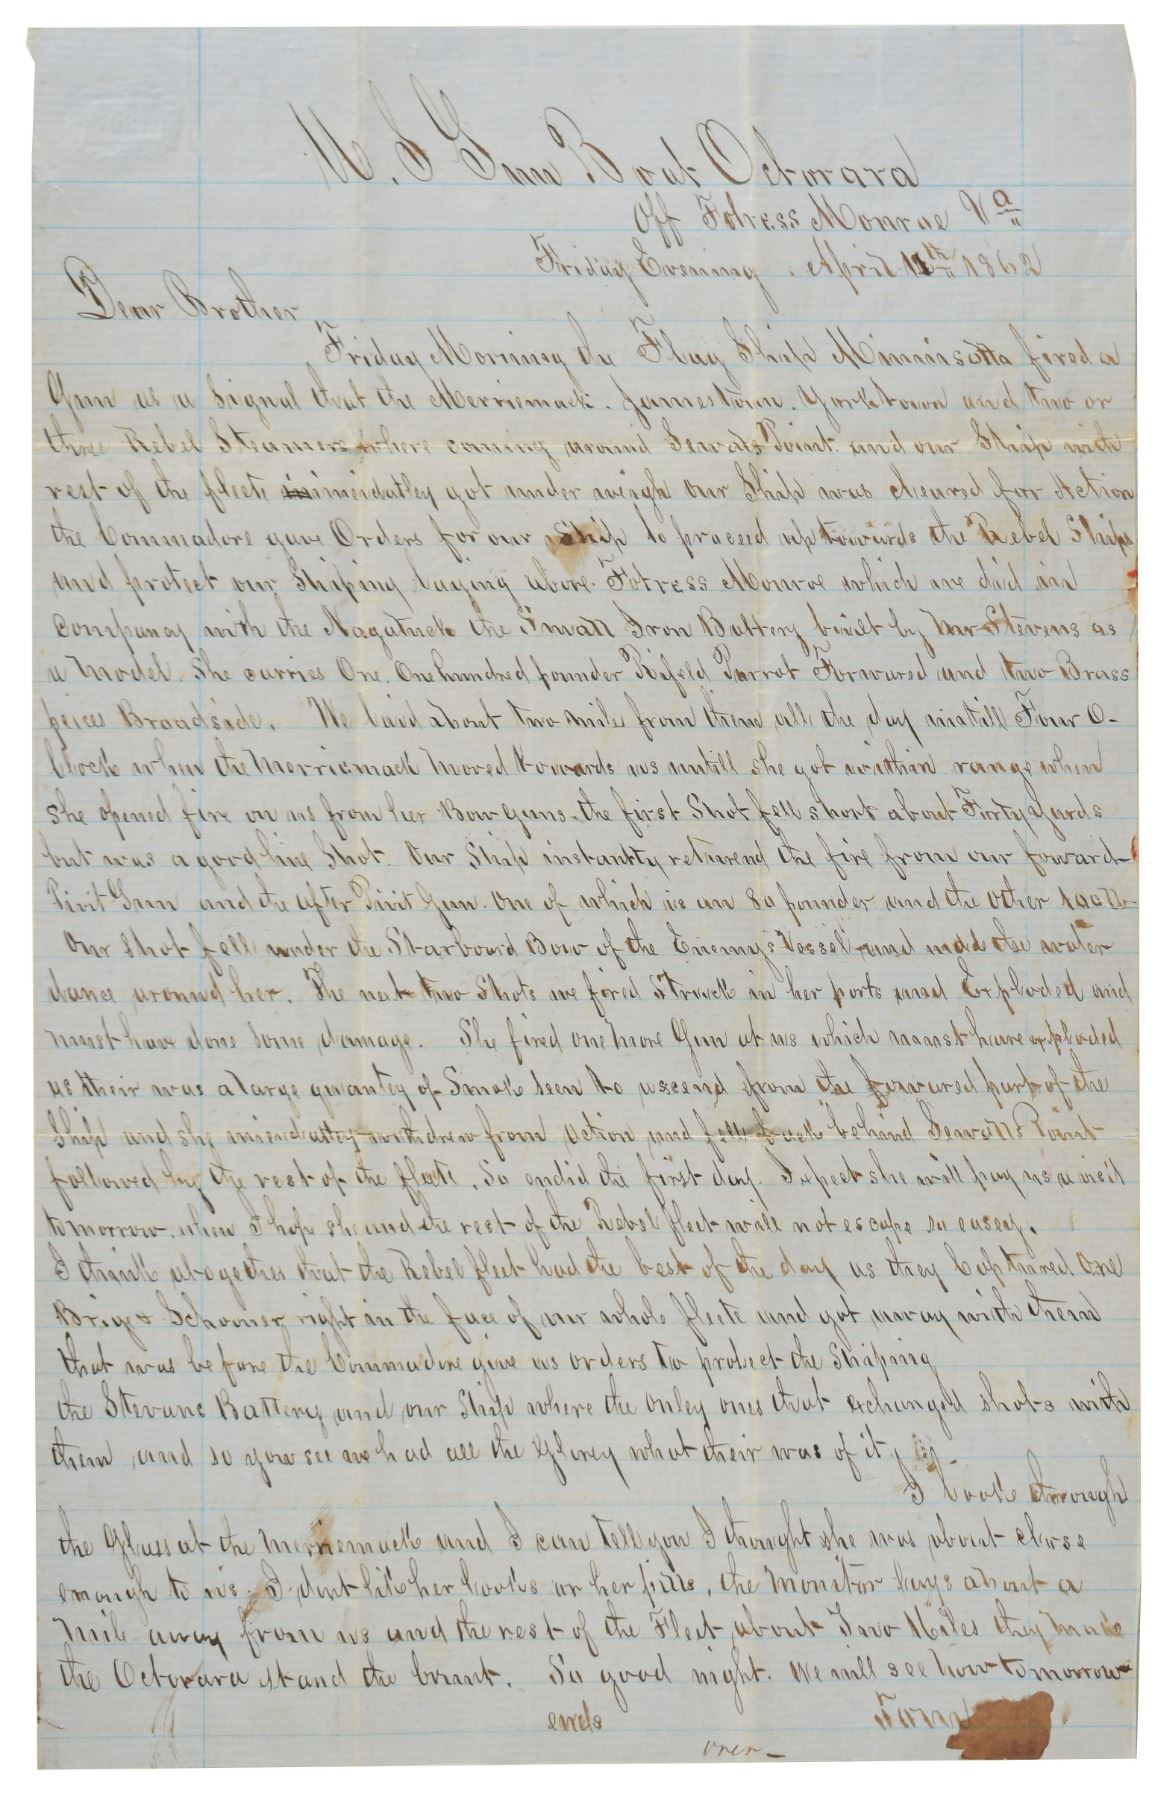 U. S Gun Boat Octorara
Off Fotress Monroe Va
Friday Evening . April 11th 1862
Dear Brother
Friday Morning the Flag Ship Minnisotta fired a
Gun as a Signal that the Merriemack . Jamestown . Yorktown and two or
three Rebel Steamers where coming around Sewals Point and our Ship with
rest of the fleete immidatley got under weigh our Ship was cleared for Action
the Commadore gave Orders for our Ship to proceed up towards the Rebel Ships
and protect our Shiping laying above Fotress Monroe which we did in
Companay with the Nagatuck the Small Iron Battery built by Mr Stevens as
a Model. She carries One. One hundred pounder Rifeld Parrot Forward and two Brass
peices Broadside. We laid about two mile from them all the day untill Four O-
Clock when the Merriemack Moved towards us untill she got within range when
She opened fire on us from her Bow guns. the first Shot fell short about Forty yards
but was a good line Shot. Our Ship instantly returend the fire from our foward-
Pivit Gun and the after Pivit Gun. One of which is an 80 pounder and the other 100 lb
Our shot fell under the Starboard Bow of the Enemys Vessel and made the water
dance around her. The next two Shots we fired Struck in her ports and Exploded and
must have done some damage. She fired one More Gun at us which must have exploded
as their was a large quantey of Smoke seen to ascend from the forward part of the
Ship and she immidatley withdrew from action and fell back behind Sewalls Point
followed by the rest of the fleete. So endid the first day. I expect she will pay us a visit
tomorrow. when I hope she and the rest of the Rebel fleet will not escape so easey.
I think alogether that the Rebel fleet had the best of the day as they Captured One
Brig & Schooner right in the face of our whole fleete and got away with them
that was before the Commadore give us orders to protect the Shiping
the Stevans Battery and our Ship where the onley ones that exchanged shots with
them and so you see we had all the Glorey what their was of it
I look through
the Glass at the Merriemack and I can tell you I thought she was about close
enough to us. I dont like her looks or her pills, the Monitor lays about a
Mile away from us and the rest of the Fleet about Two Miles they made
the Octorara stand the brunt. So good night. We will see how tomorrow
ends
over -